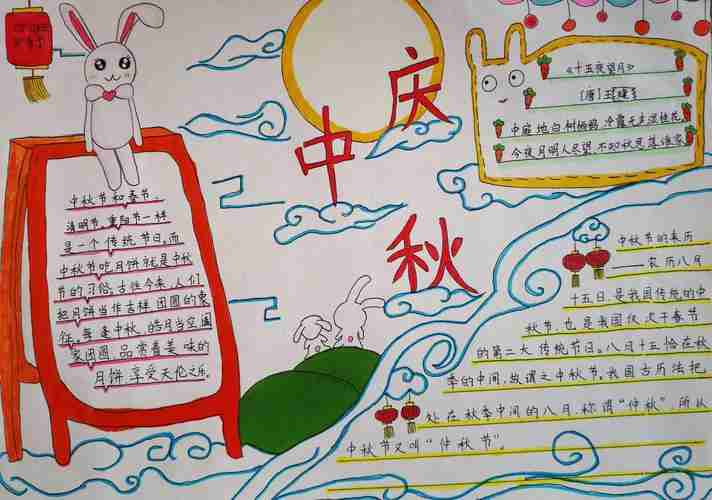 庆
中
秋
中秋节和春节、
清明节、重阳节一样
是一个传统节日，而
中秋节吃月饼就是中秋
节的习俗，古往今来，人们
把月饼当作吉祥、团圆的象
征，每逢中秋，皓月当空，阖
家团圆，品尝着美味的
月饼，享受天伦之乐。
《十五夜望月》
[唐]王建
中庭地白树栖鸦，冷露无声湿桂花
今夜月明人尽望，不知秋思落谁家
中秋节的来历
——农历八月
十五日，是我国传统的中
秋节，也是我国仅次于春节
的第二大传统节日。八月十五恰在秋
季的中间，故谓之中秋节，我国古历法把
处在秋季中间的八月，称谓“仲秋”，所以
中秋节又叫“仲秋节”。